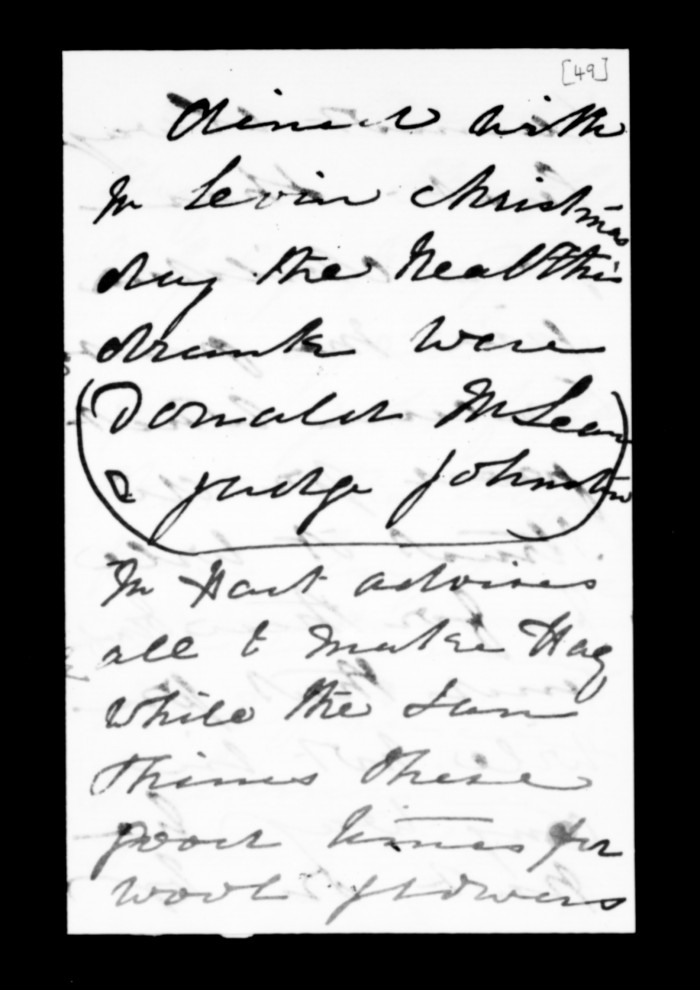 [49]
dined with
Mr Levin Christmas
day the healths
drunk were
Donald McLean
& judge Johnston
Mr Hart advises
all to make Hay
while the sun
shines these
good times for
wool growers